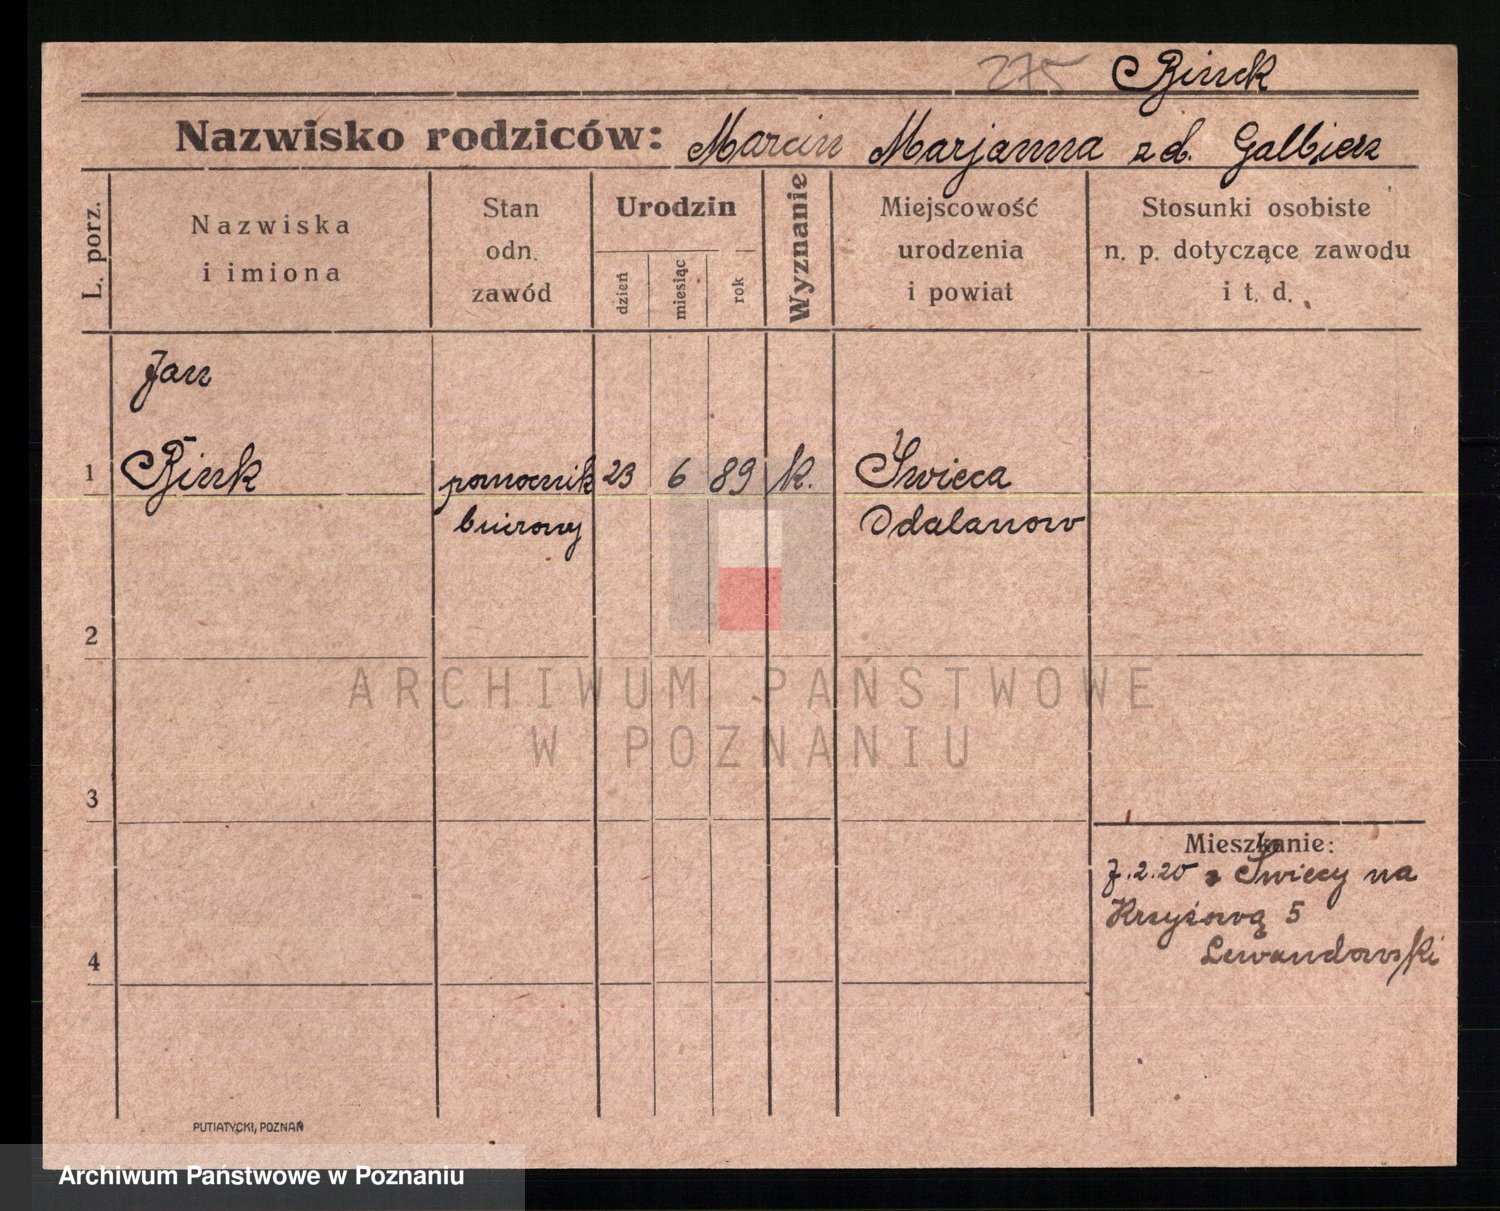 275 Binek
Nazwisko rodziców: Marcin Marjanna zd. Galbierz
L. porz.
Nazwiska
i imiona
Stan
odn.
zawód
Urodzin
dzień
miesiąc
rok
Wyznanie
Miejscowość
urodzenia
i powiat
Stosunki osobiste
n. p. dotyczące zawodu
i t. d.
Jan
1 Binek pomocnik 23 6 89 k. Świeca
biurowy Odalanow
2
3
4
Mieszkanie:
7.2.20 z Świecy na
Krzyżową 5
Lewandowski
PUTIATYCKI, POZNAŃ
ARCHIWUM PAŃSTWOWE
W POZNANIU
Archiwum Państwowe w Poznaniu